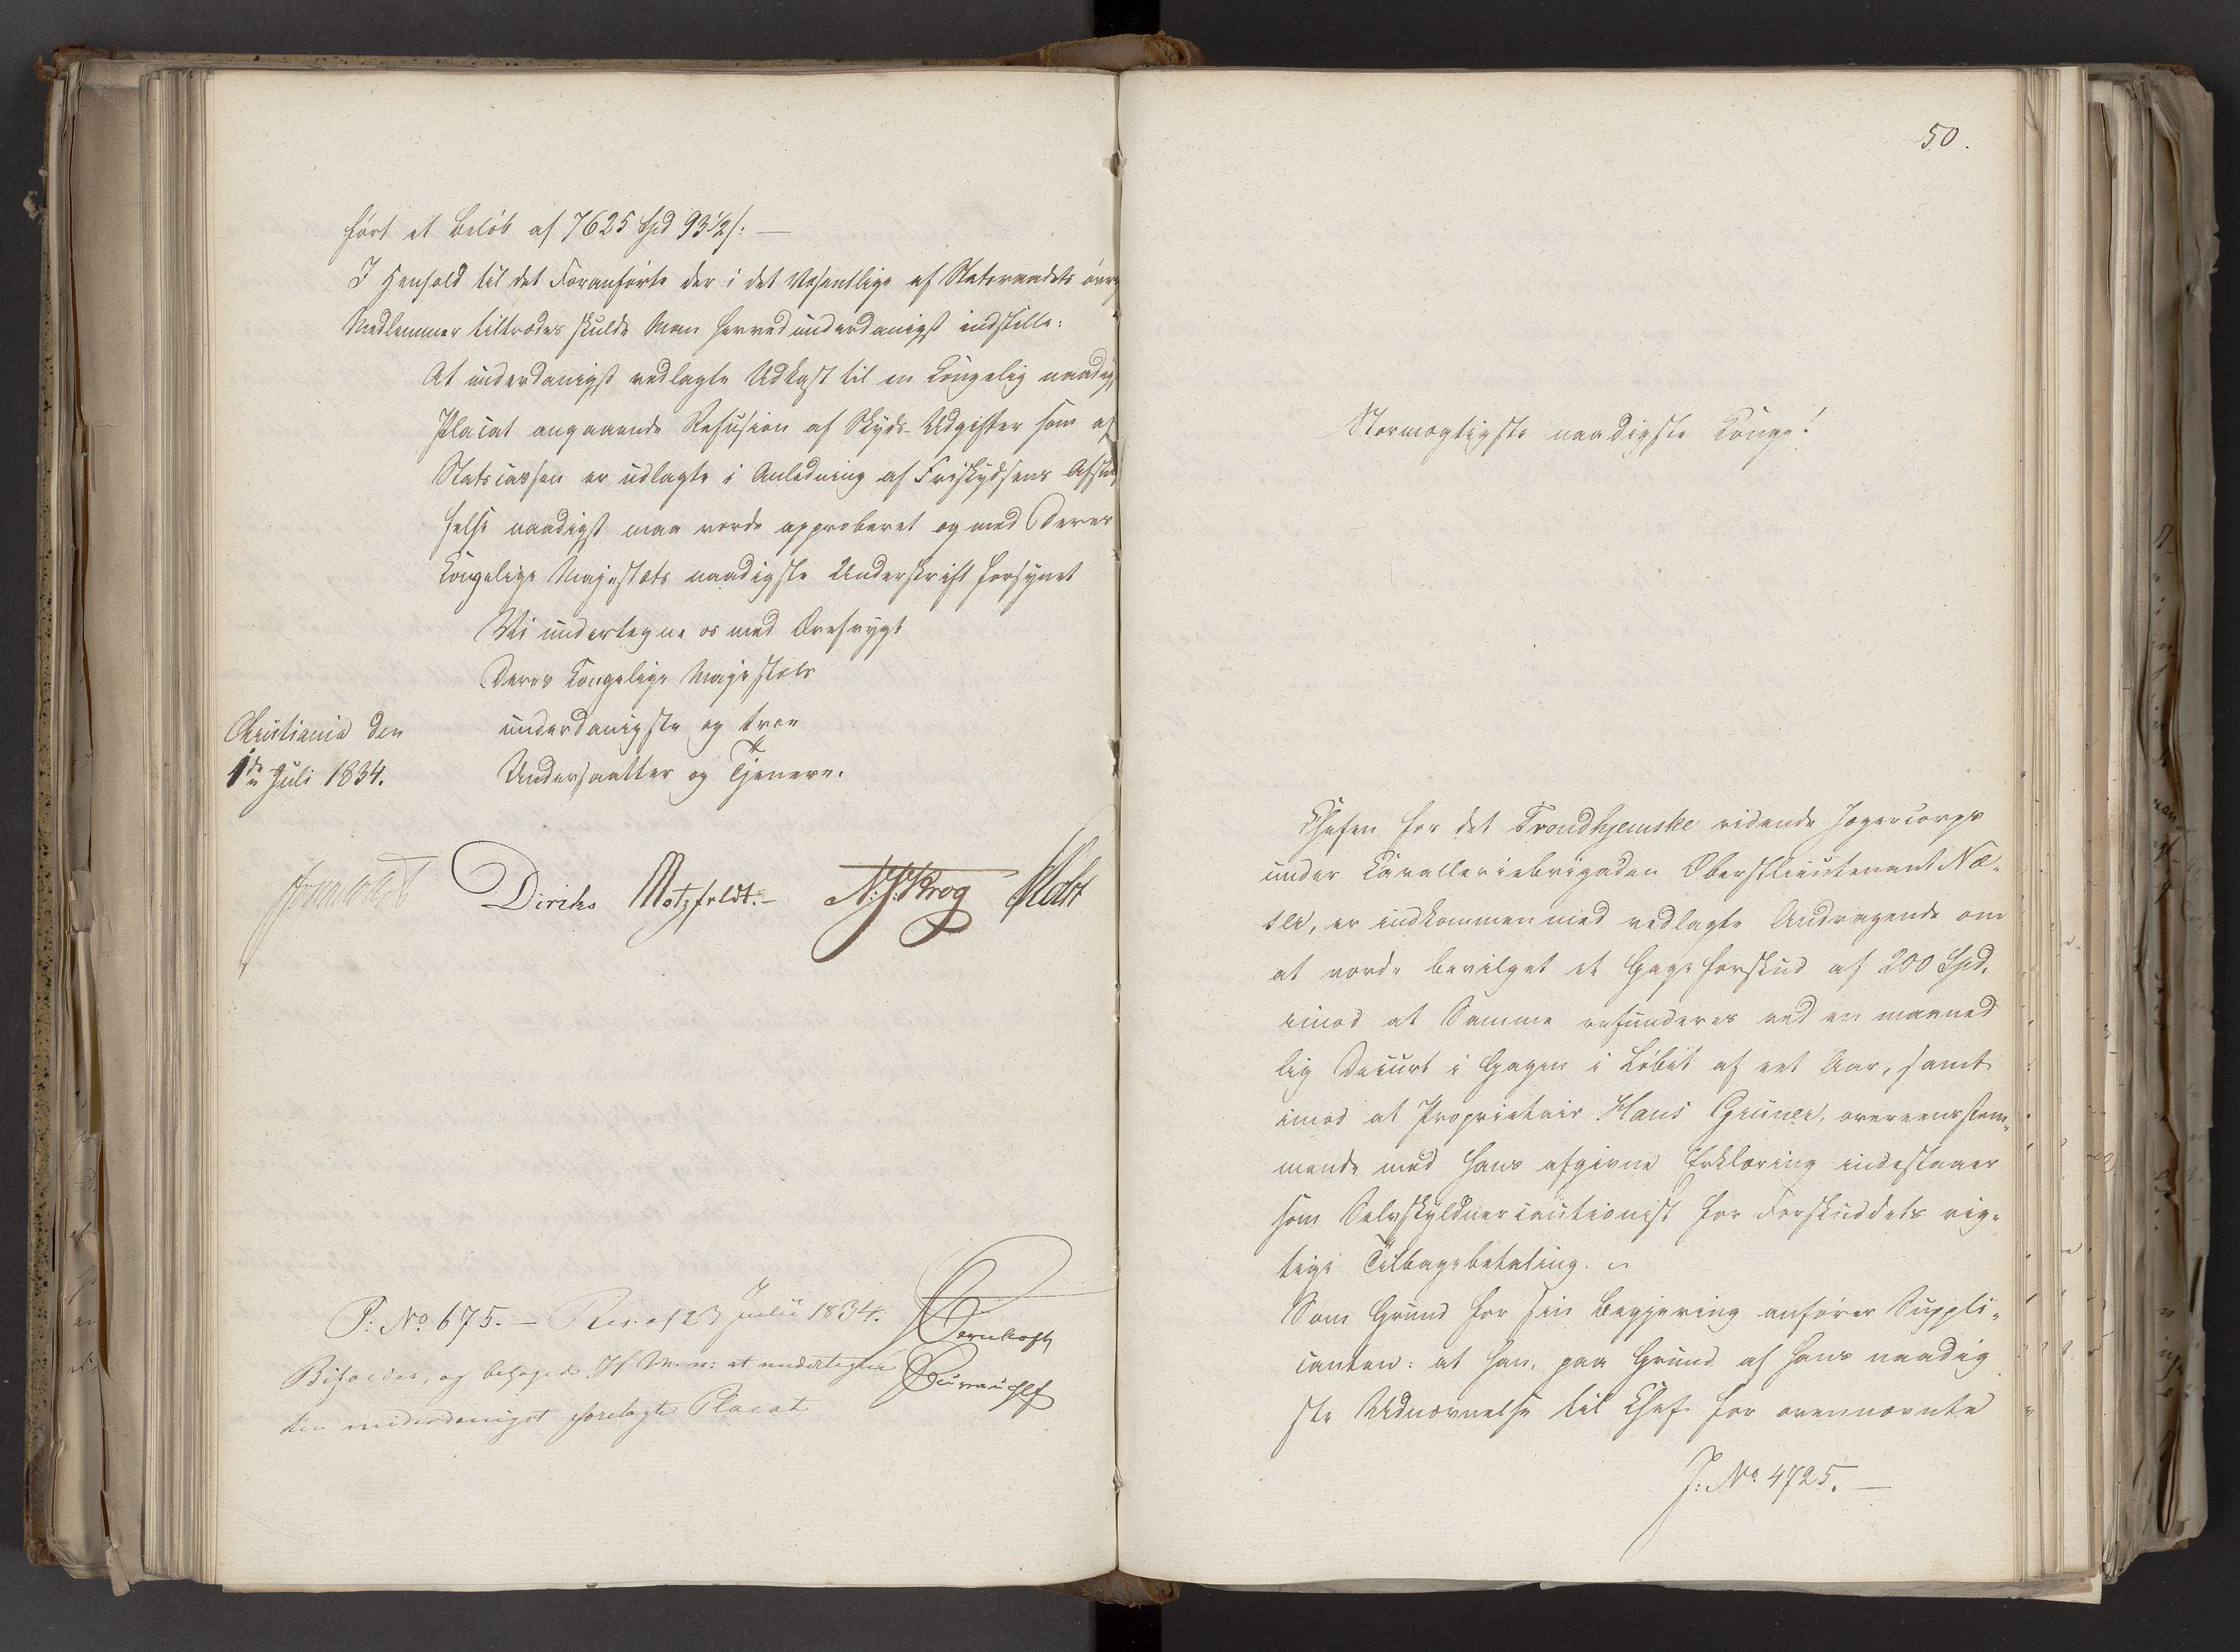 ført et Beløb af 7625 Spd 93 1/2 s. —
I Henhold til det Foranførte der i det Væsentlige af Statsraadets øvrige
Medlemmer tiltrædes skulde Man herved underdanigst indstille:
At underdanigst vedlagte Udkast til en Kongelig naadigst
Placat angaaende Refusion af Skyds-Udgifter som af
Statscassen er udlagte i Anledning af Friskydsens Afskaf
felse naadigst maa vorde approberet og med Deres
Kongelige Majestæts naadigste Underskrift forsynet
Vi undertegne os med Ærefrygt
Deres Kongelige Majestæts
Christiania den underdanigste og troe
1ste Juli 1834. Undersaatter og Tjenere.
Diriks Motzfeldt.- N: J: Krog Holst
P: No 675. — Res: af 23 Julii 1834.
Bifaldes, og behagede H M. n: at undertegne
den underdanigst forelagte Placat
50.
Stormægtigste naadigste Konge!
Chefen for det Trondhjemske ridende Jægercorps
under Cavalleriebrigaden Oberstlieutenant Næ-
ser, er indkommen med vedlagte Andragende om
at vorde bevilget et Gageforskud af 200 Spd.
imod at Samme refunderes ved en maaned
lig Decurt i Gagen i Løbet af eet Aar, samt
imod at Proprietair Hans Grüner, overeensstem-
mende med hans afgivne Erklæring indestaaer
som Selvskyldnercautionist for Forskuddets rig-
tige Tilbagebetaling.
Som Grund for sin Begjering anfører Suppli-
canten: at han, paa Grund af hans naadig
ste Udnævnelse til Chef for ovennævnte
J: No 4725. —